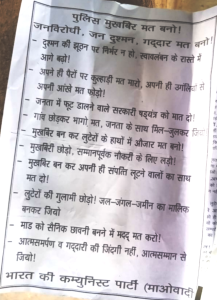 पुलिस मुखबिर मत बनो!
जनविरोधी, जन दुश्मन, गद्दार मत बनो!
- दुश्मन की झूठन पर निर्भर न हो, स्वावलंबन के रास्ते में
आगे बढ़ो!
- अपने ही पैरों पर कुल्हाड़ी मत मारो, अपनी ही उंगलियों से
अपनी आंखें मत फोड़ो!
- जनता में फूट डालने वाले सरकारी षड्यंत्र को मात दो!
- गांव छोड़कर मागो मत, जनता के साथ मिल-जुलकर
- मुखबिर बन कर लुटेरों के हाथों में औजार मत बनो!
- मुखबिरी छोड़ो, सम्मानपूर्वक नौकरी के लिए लड़ो!
- मुखबिर बन कर अपनी ही संपत्ति लूटने वालों का साथ
मत दो!
- लुटेरों की गुलामी छोड़ो! जल-जंगल-जमीन का मालिक
बनकर जियो
- माड़ को सैनिक छावनी बनने में मदद मत करो!
- आत्मसमर्पण व गद्दारी की जिंदगी नहीं, आत्मसम्मान से
जियो!
भारत की कम्युनिस्ट पार्टी (माओवादी)